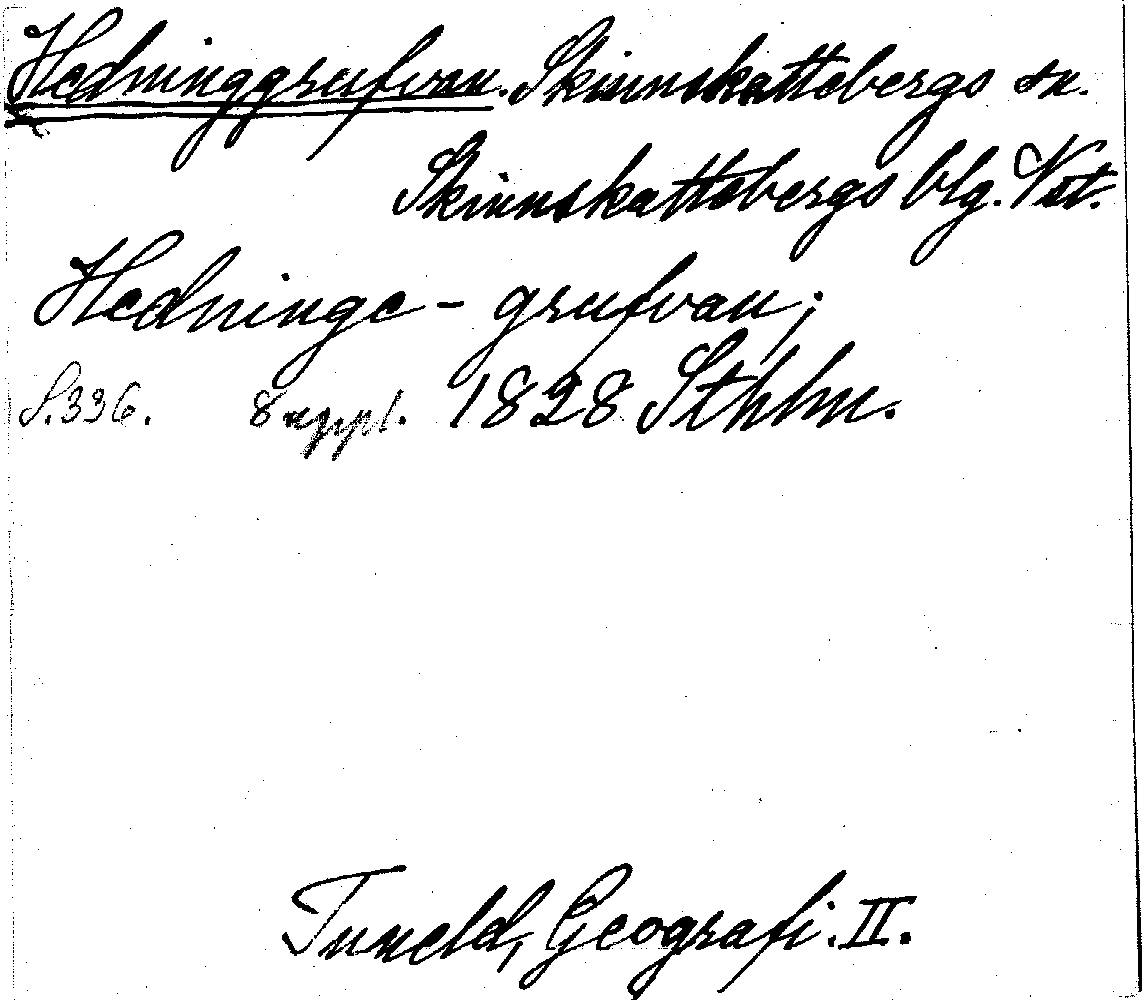 Hedninggrufvan. Skinnskattebergs sn.
Skinnskattebergs blg. Vstm.
Hedninge-grufvan;
S.336. 8 uppl. 1828 Sthlm.
Tuneld, Geografi. II.